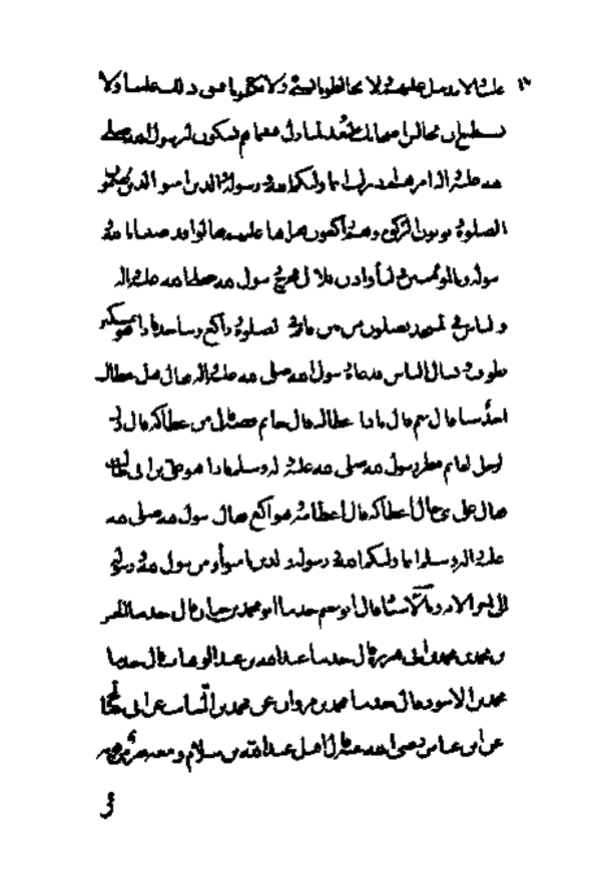 ولا نكلمهم فشق ذلك علينا ولا
نستطيع ان نجالس اصحابك لبعد المنازل فبينما هم يشكون لرسول الله صلى
الله عليه واله امرهم اذ نزل انما وليكم الله ورسوله والذين امنوا الذين يقيمون
الصلوة ويوتون الزكوة وهم راكعون فقراها عليهم فقالوا قد رضينا بالله
ورسوله وبالمؤمنين فأذن بلال فخرج رسول الله صلى الله عليه واله
والناس في المسجد يصلون من بين قائم في الصلوة وراكع وساجد فاذا هو بمسكين
يطوف ويسال الناس فدعاه رسول الله صلى الله عليه واله فقال هل اعطاك
احد شيئا قال نعم قال ماذا اعطاك قال خاتم فضة قال من اعطاكه قال ذلك
الرجل القائم فنظر رسول الله صلى الله عليه واله وسلم فاذا هو علي بن ابي طالب
فقال على اي حال أعطاكه قال أعطانيه وهو راكع فقال رسول الله صلى الله
عليه واله وسلم انما وليكم الله ورسوله والذين امنوا ومن يتول الله ورسوله
الى اخر الاية وبالاسناد قال ابو نعيم حدثنا ابو محمد بن حيان قال حدثنا الحسن
بن محمد بن ابي هريرة قال حدثنا عبد الله بن عبد الوهاب قال حدثنا
محمد بن الاسود قال حدثنا محمد بن مروان عن محمد بن السائب عن ابي صالح
عن ابن عباس رضي الله عنه قال اقبل عبد الله بن سلام ومعه نفر من قومه